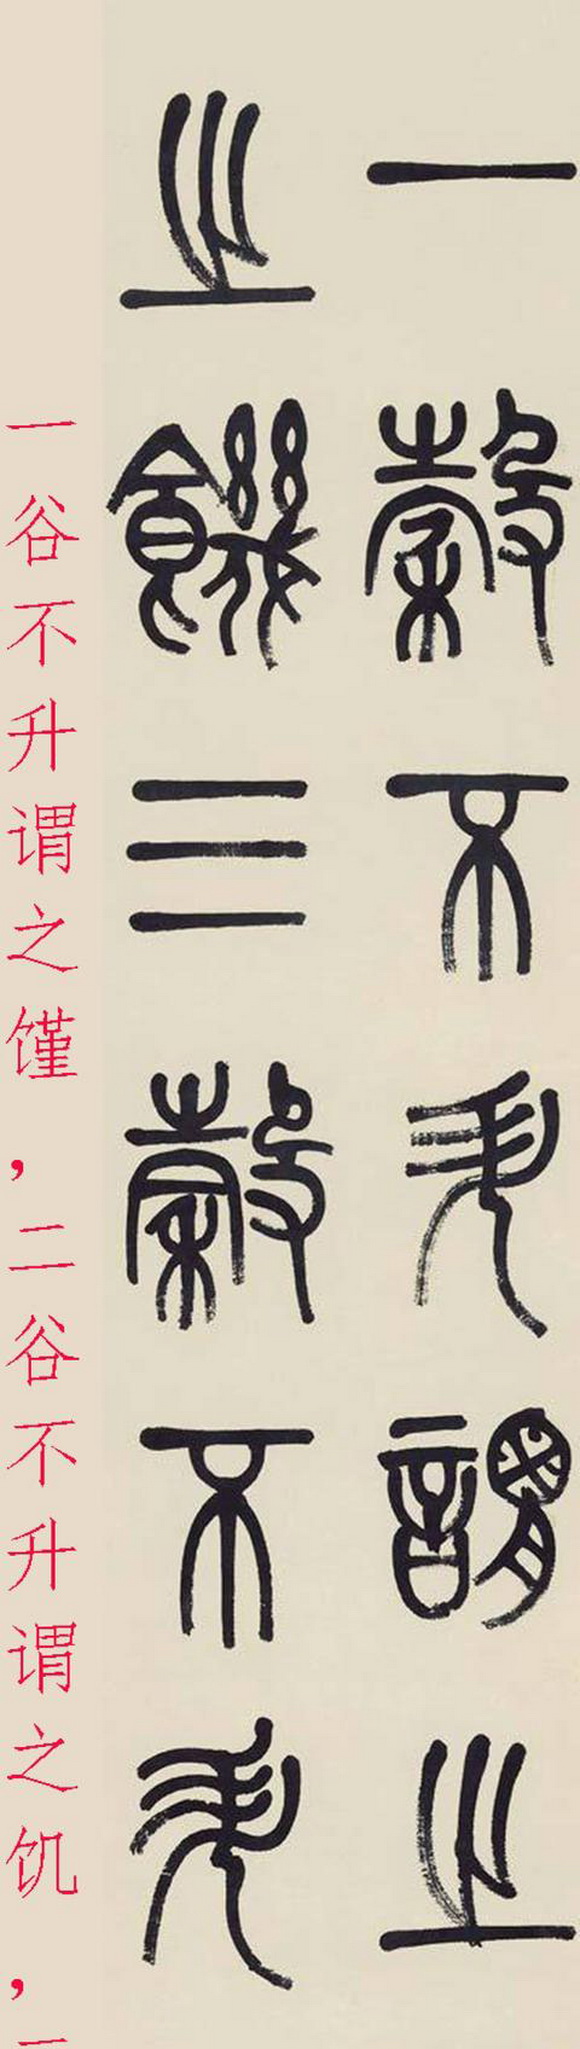 一穀不升謂之
之饑三穀不升
一谷不升谓之馑，二谷不升谓之饥，